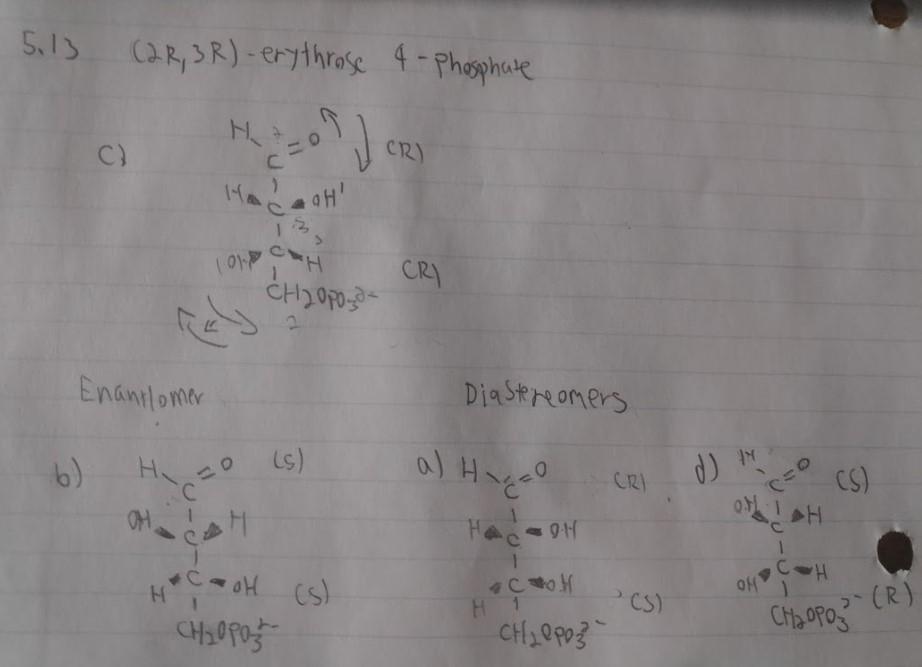 5.13 (2R,3R)-erythrose 4-phosphate
c) H C=O (R)
H C OH
OH C H (R)
CH2OPO3 2-
Enantiomer Diastereomers
b) H C=O (S)
OH C H
H C OH (S)
CH2OPO3 2-
a) H C=O (R)
H C OH
H C OH (S)
CH2OPO3 2-
d) H C=O (S)
OH C H
OH C H (R)
CH2OPO3 2-